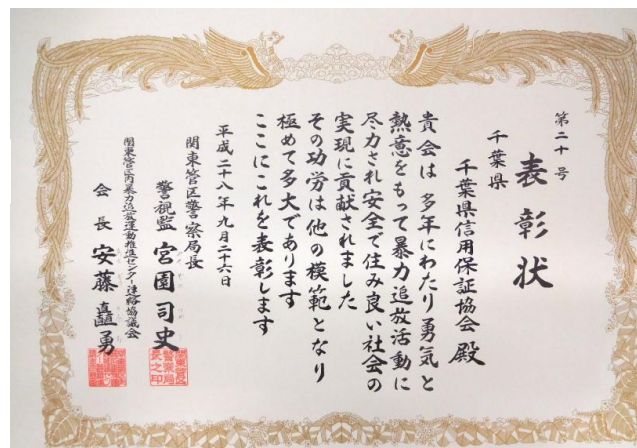 第二十号
表彰状
千葉県
千葉県信用保証協会 殿
貴会は 多年にわたり勇気と
熱意をもって暴力追放活動に
尽力され安全で住み良い社会の
実現に貢献されました
その功労は他の模範となり
極めて多大であります
ここにこれを表彰します
平成二十八年九月二十六日
関東管区警察局長
警視監 宮園司史
関東管区内暴力追放運動推進センター連絡協議会
会長 安藤 勇